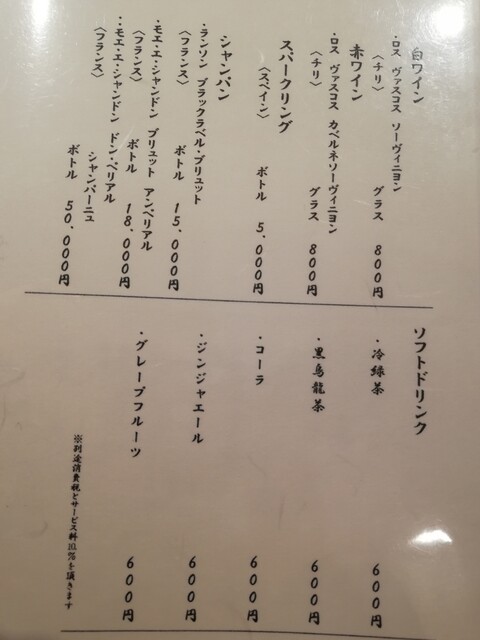 白ワイン
・ロス ヴァスコス ソーヴィニヨン
〈チリ〉 グラス 800円
赤ワイン
・ロス ヴァスコス カベルネソーヴィニヨン
〈チリ〉 グラス 800円
スパークリング
〈スペイン〉 ボトル 5,000円
シャンパン
・ランソン ブラックラベル・ブリュット
〈フランス〉 ボトル 15,000円
・モエ・エ・シャンドン ブリュット アンペリアル
〈フランス〉 ボトル 18,000円
・モエ・エ・シャンドン ドン・ペリアル
シャンパーニュ
〈フランス〉 ボトル 50,000円
ソフトドリンク
・冷緑茶 600円
・黒烏龍茶 600円
・コーラ 600円
・ジンジャエール 600円
・グレープフルーツ 600円
※別途消費税とサービス料10%を頂きます